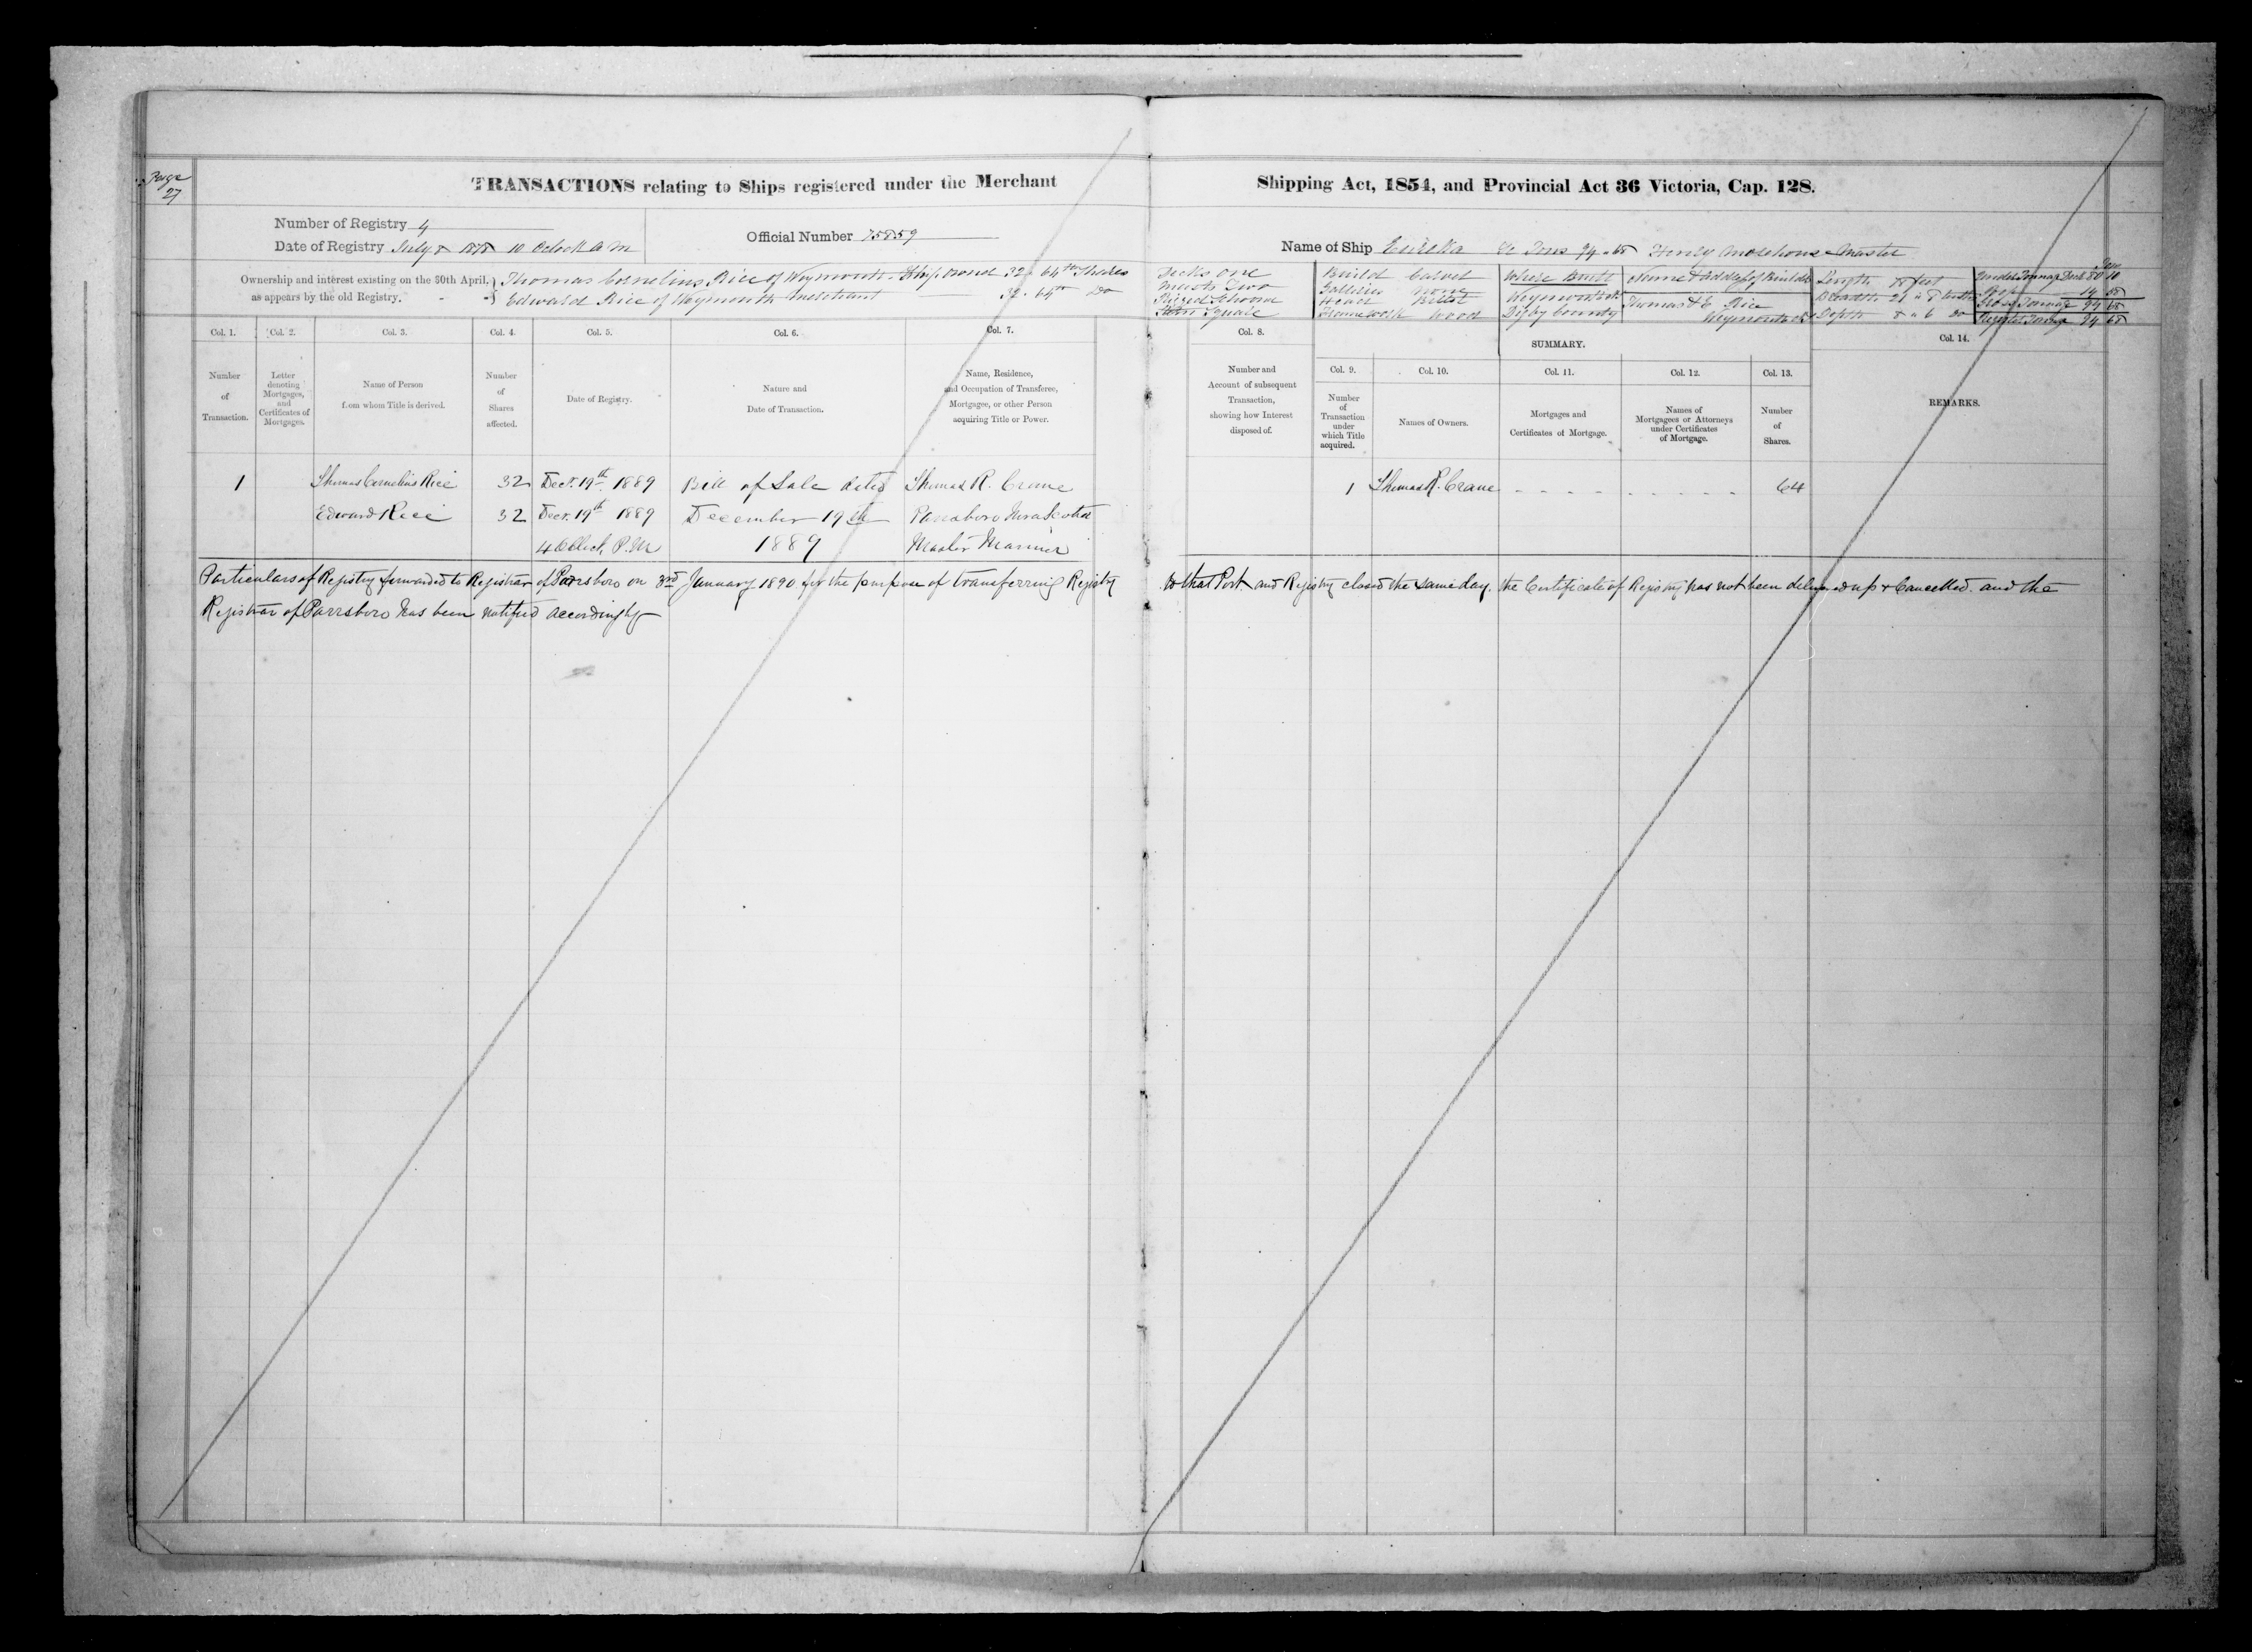 Page
27
TRANSACTIONS relating to Ships registered under the Merchant Shipping Act, 1854, and Provincial Act 36 Victoria, Cap. 128.
Number of Registry 4
Date of Registry July 8 1878 10 Oclock a m
Official Number 75859
Name of Ship Eureka Tons 94.68 Master
Ownership and interest existing on the 30th April,
as appears by the old Registry.
Thomas Cornelius Rice of Weymouth Ship owner 32 64th Shares
Edward Rice of Weymouth merchant 32 64th Do
Decks one
Masts Two
Rigged Schooner
Stern Square
Build Carvel
Galleries none
Head Billet
Framework Wood
Where Built
Weymouth
Digby County
Name & Address of Builder
Thomas & E Rice
Weymouth
Length feet
Breadth 21 " 8
Depth 8 " 6 Do
Under Tonnage Deck 80 10
Poop 14 58
Gross Tonnage 94 68
Register Tonnage 94 68
Col. 1.
Number
of
Transaction.
Col. 2.
Letter
denoting
Mortgages,
and
Certificates of
Mortgages.
Col. 3.
Name of Person
from whom Title is derived.
Col. 4.
Number
of
Shares
affected.
Col. 5.
Date of Registry.
Col. 6.
Nature and
Date of Transaction.
Col. 7.
Name, Residence,
and Occupation of Transferee,
Mortgagee, or other Person
acquiring Title or Power.
Col. 8.
Number and
Account of subsequent
Transaction,
showing how Interest
disposed of.
SUMMARY.
Col. 9.
Number
of
Transaction
under
which Title
acquired.
Col. 10.
Names of Owners.
Col. 11.
Mortgages and
Certificates of Mortgage.
Col. 12.
Names of
Mortgagees or Attorneys
under Certificates
of Mortgage.
Col. 13.
Number
of
Shares.
Col. 14.
REMARKS.
1 Thomas Cornelius Rice 32 Decr. 19th 1889 Bill of Sale dated Thomas R. Crane 1 Thomas R. Crane 64
Edward Rice 32 Decr. 19th 1889 December 19th Parrsboro Nova Scotia
4 OClock P.M 1889 Master Mariner
Particulars of Registry forwarded to Registrar of Parrsboro on 3rd January 1890 for the purpose of transferring Registry to that Port and Registry closed the same day. the Certificate of Registry has not been delivered up & Cancelled. and the
Registrar of Parrsboro has been notified accordingly